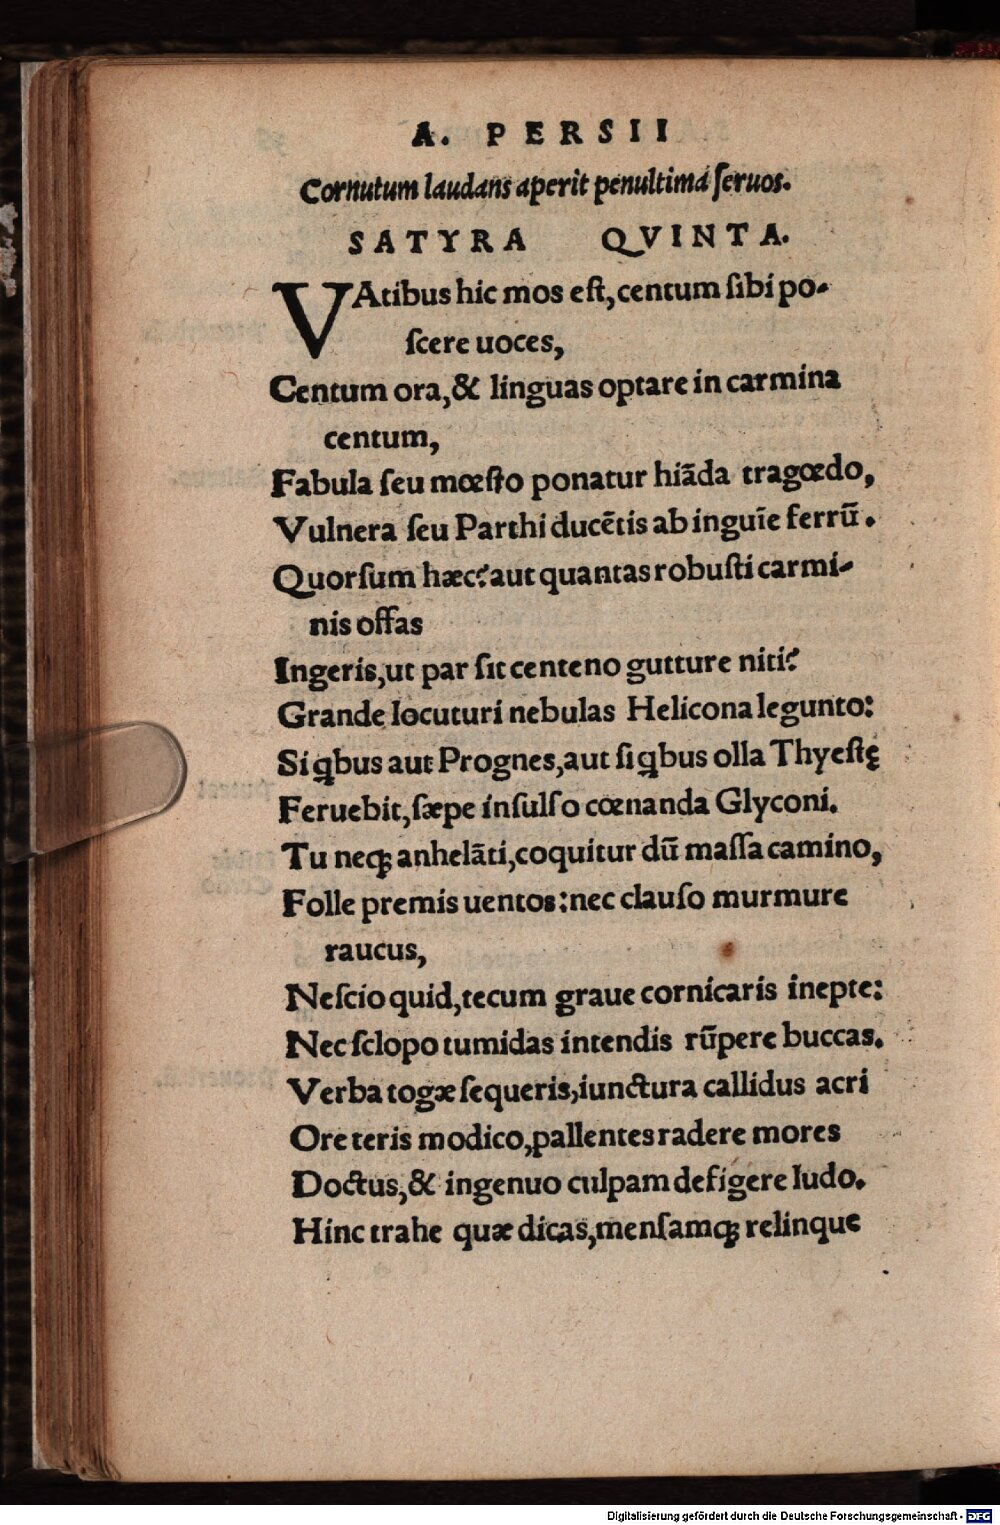 A. PERSII
Cornutum laudans aperit penultima ſeruos.
SATYRA QVINTA.
VAtibus hic mos eſt, centum ſibi po-
ſcere uoces,
Centum ora, & linguas optare in carmina
centum,
Fabula ſeu mœſto ponatur hiãda tragœdo,
Vulnera ſeu Parthi ducẽtis ab inguĩe ferrũ.
Quorſum hæc? aut quantas robuſti carmi-
nis offas
Ingeris, ut par ſit centeno gutture niti?
Grande locuturi nebulas Helicona legunto:
Si qbus aut Prognes, aut ſi qbus olla Thyeſtę
Feruebit, ſæpe inſulſo cœnanda Glyconi.
Tu neqꝫ anhelãti, coquitur dũ maſſa camino,
Folle premis uentos: nec clauſo murmure
raucus,
Neſcio quid, tecum graue cornicaris inepte:
Nec ſclopo tumidas intendis rũpere buccas.
Verba togæ ſequeris, iunctura callidus acri
Ore teris modico, pallentes radere mores
Doctus, & ingenuo culpam defigere ludo.
Hinc trahe quæ dicas, menſamqꝫ relinque
Digitalisierung gefördert durch die Deutsche Forschungsgemeinschaft - DFG